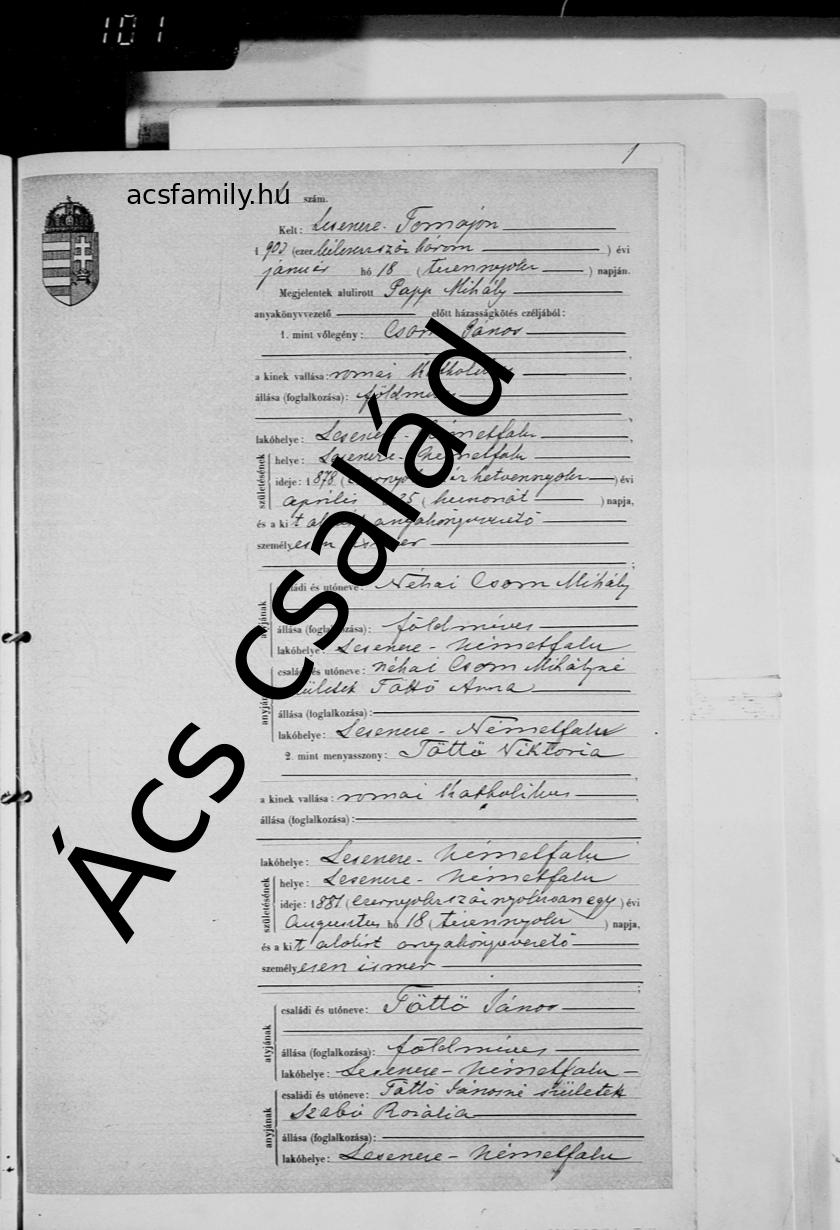 101
1
acsfamily.hu
szám.
Kelt: Lesencze-Tomajon
1903 (ezer kilenczszáz három) évi
január hó 18 (tizennyolcz) napján.
Megjelentek alulirott Papp Mihály
anyakönyvvezető előtt házasságkötés czéljából:
1. mint vőlegény: Csom János
a kinek vallása: romai
állása (foglalkozása):
lakóhelye: Németfalu
születésének helye: Németfalu
ideje: 1878 hetvennyolcz) évi
április 25 (huszonöt) napja,
és a kit anyakönyvvezető
személyesen
utóneve: Néhai Csom Mihály
állása (foglalkozása): földmíves
atyjának lakóhelye: Lesencze-Németfalu
családi és utóneve: néhai Csom Mihályné
született Töttő Anna
állása (foglalkozása):
anyjának lakóhelye: Lesencze-Németfalu
2. mint menyasszony: Töttő Viktoria
a kinek vallása: romai katholikus
állása (foglalkozása):
lakóhelye: Lesencze-Németfalu
születésének helye: Lesencze-Németfalu
ideje: 1881 (ezernyolczszáznyolczvanegy) évi
augusztus hó 18 (tizennyolcz) napja,
és a kit alolirt anyakönyvvezető
személyesen ismer
családi és utóneve: Töttő János
atyjának állása (foglalkozása): földmíves
lakóhelye: Lesencze-Németfalu
családi és utóneve: Töttő Jánosné született
Szabó Rozália
anyjának állása (foglalkozása):
lakóhelye: Lesencze-Németfalu
Ács család